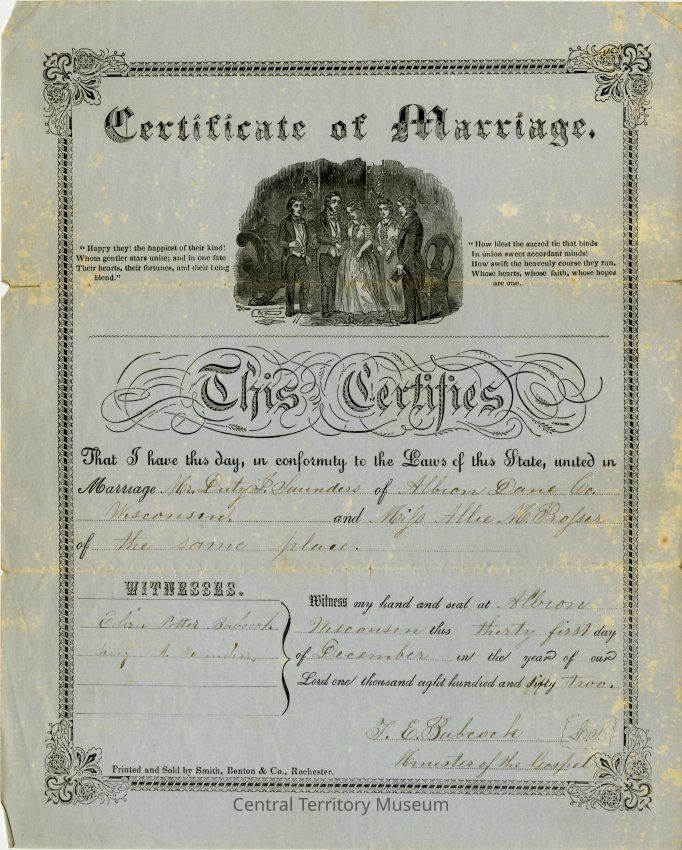 Certificate of Marriage.
"Happy they! the happiest of their kind!
Whom gentler stars unite; and in one fate
Their hearts, their fortunes, and their being
blend."
"How blest the sacred tie that binds
In union sweet accordant minds!
How swift the heavenly course they run,
Whose hearts, whose faith, whose hopes
are one.
This Certifies
That I have this day, in conformity to the Laws of this State, united in
Marriage Mr. Saunders of Albion Dane Co.
Wisconsin, and Miss Allie M. Prosser
of the same place.
WITNESSES.
Potter Babcock
Saunders
Witness my hand and seal at Albion
Wisconsin this thirty first day
of December in the year of our
Lord one thousand eight hundred and fifty two.
T. E. Babcock
Minister of the Gospel
Printed and Sold by Smith, Benton & Co., Rochester.
Central Territory Museum